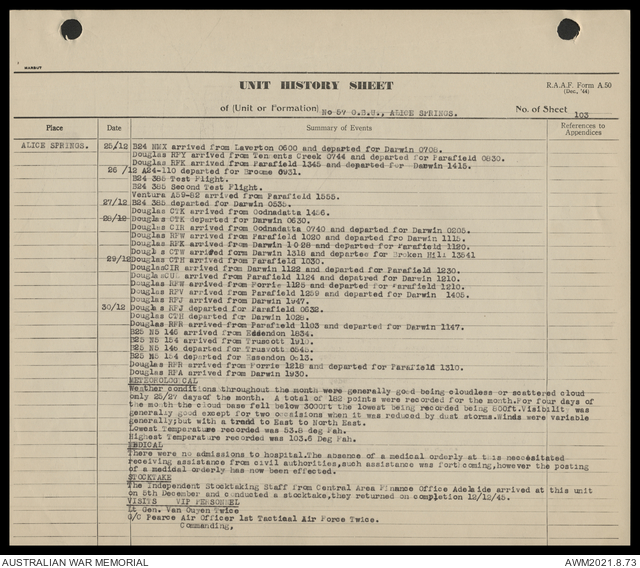 UNIT HISTORY SHEET
R.A.A.F. Form A.50
(Dec., '44)
of (Unit or Formation) No 57 O.B.U., ALICE SPRINGS.
No. of Sheet 103
Place Date Summary of Events References to Appendices
ALICE SPRINGS. 25/12 B24 HMX arrived from Laverton 0600 and departed for Darwin 0708.
Douglas RFY arrived from Tennents Creek 0744 and departed for Parafield 0830.
Douglas RFK arrived from Parafield 1345 and departed for Darwin 1415.
26 /12 A24-110 departed for Broome 0931.
B24 385 Test Flight.
B24 385 Second Test Flight.
Ventura A59-82 arrived from Parafield 1555.
27/12 B24 385 departed for Darwin 0535.
Douglas CTK arrived from Oodnadatta 1456.
28/12 Douglas CTK departed for Darwin 0630.
Douglas CIR arrived from Oodnadatta 0740 and departed for Darwin 0205.
Douglas RFW arrived from Parafield 1020 and departed fro Darwin 1115.
Douglas RFK arrived from Darwin 1028 and departed for Parafield 1120.
Douglas CTW arrived form Darwin 1318 and departee for Broken Hill 13541
29/12 Douglas CTH arrived from Parafield 1030.
DouglasCIR arrived from Darwin 1122 and departed for Parafield 1230.
Douglas arrived from Parafield 1124 and depatred for Darwin 1210.
Douglas RFW arrived from Forrie 1125 and departed for Parafield 1210.
Douglas RFY arrived from Parafield 1259 and departed for Darwin 1405.
Douglas RFJ arrived from Darwin 1947.
30/12 Douglas RFJ departed for Parafield 0632.
Douglas CTH departed for Darwin 1028.
Douglas RFN arrived from Parafield 1103 and departed for Darwin 1147.
B25 N5 146 arrived from Essendon 1834.
B25 N5 154 arrived from Truscott 1910.
B25 N5 146 departed for Truscott 0545.
B25 N5 154 departed for Essendon 0613.
Douglas RFR arrived from Forrie 1218 and departed for Parafield 1310.
Douglas RFA arrived from Darwin 1930.
METEOROLOGICAL
Weather conditions throughout the month were generally good being cloudless or scattered cloud
only 25/27 daysof the month. A total of 182 points were recorded for the month.For four days of
the month the cloud base fell below 3000ft the lowest being recorded being 800ft.Visibility was
generally good except for two occasions when it was reduced by dust storms.Winds were variable
generally;but with a trend to East to North East.
Lowest Temperature recorded was 53.8 deg Fah.
Highest Temperature recorded was 103.6 Deg Fah.
MEDICAL
There were no admissions to hospital.The absence of a medical orderly at this necessitated
receiving assistance from civil authorities,such assistance was forthcoming,however the posting
of a medical orderly has now been effected.
STOCKTAKE
The Independent Stocktaking Staff from Central Area Finance Office Adelaide arrived at this unit
on 5th December and conducted a stocktake,they returned on completion 12/12/45.
VISITS VIP PERSONNEL
Lt Gen. Van Oyen Twice
G/C Pearce Air Officer 1st Tactical Air Force Twice.
Commanding,
AUSTRALIAN WAR MEMORIAL
AWM2021.8.73